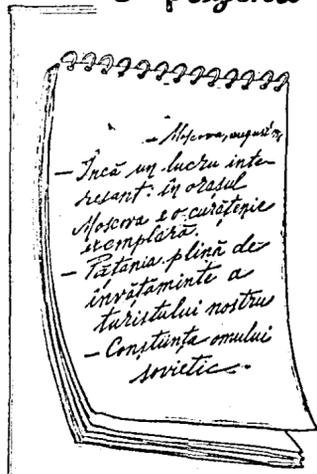 — Moscova, august
— Încă un lucru inte-
resant: în orașul
Moscova e o curățenie
exemplară.
— Pățania plină de
învățăminte a
turistului nostru
— Conștiința omului
sovietic.